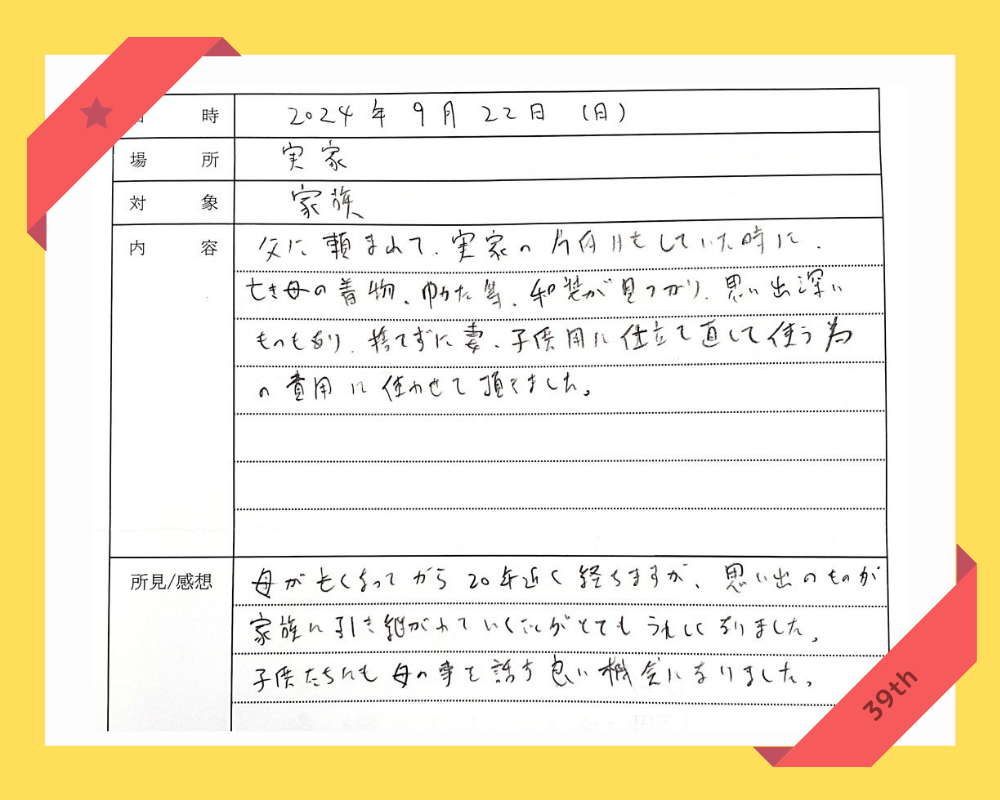 時 2024年 9月 22日 (日)
場所 実家
対象 家族
内容 父に頼まれて、実家の片付けをしていた時に、
亡き母の着物、ゆかた等、和装が見つかり、思い出深い
ものもあり、捨てずに妻、子供用に仕立て直して使う為
の費用に使わせて頂きました。
所見/感想 母が亡くなってから20年近く経ちますが、思い出のものが
家族に引き継がれていくことがとてもうれしくなりました。
子供たちにも母の事を話す良い機会になりました。
39th